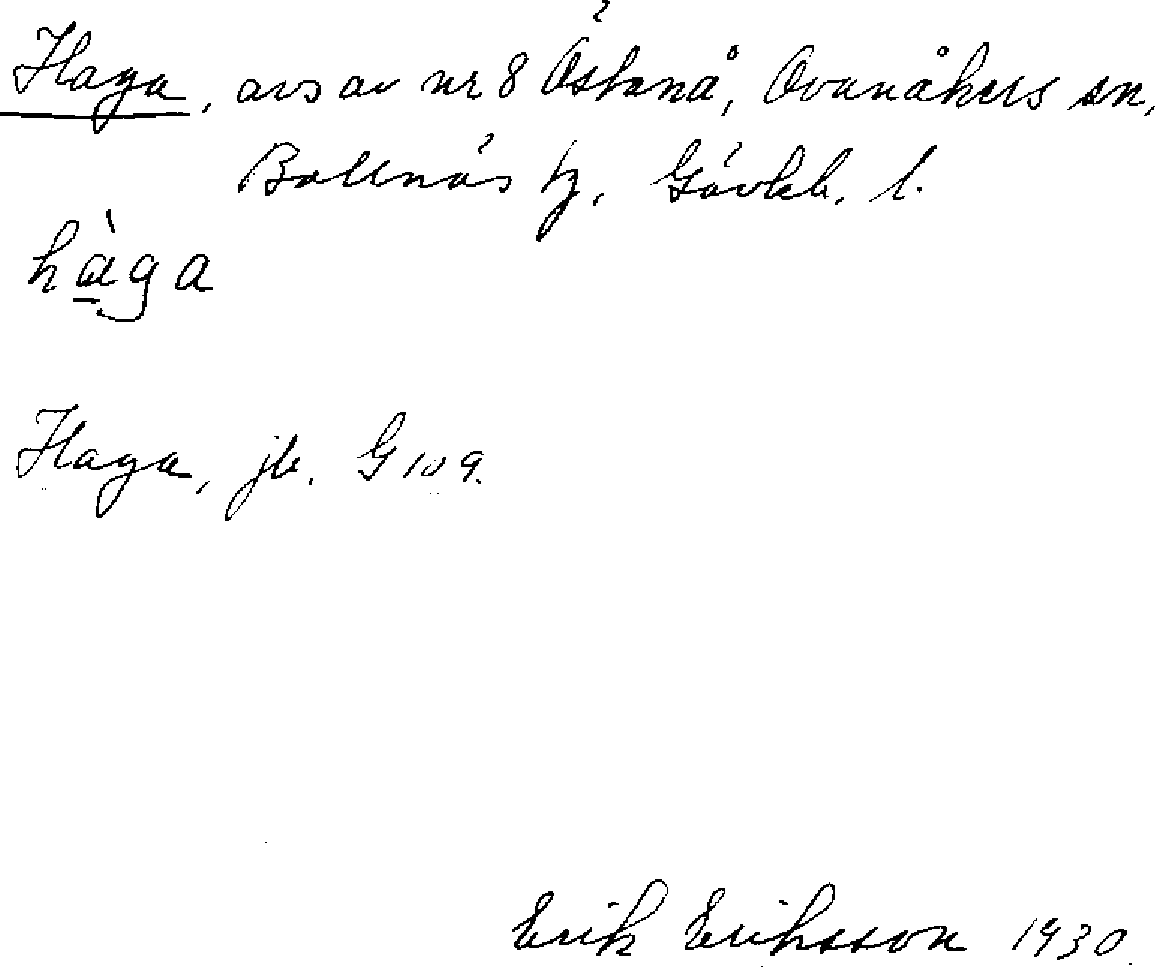 Haga, avs av nr 8 Östanå, Ovanåkers sn,
Bollnäs tg, Gävleb. l.
hàga
Haga, jb. G 109.
Erik Eriksson 1930.